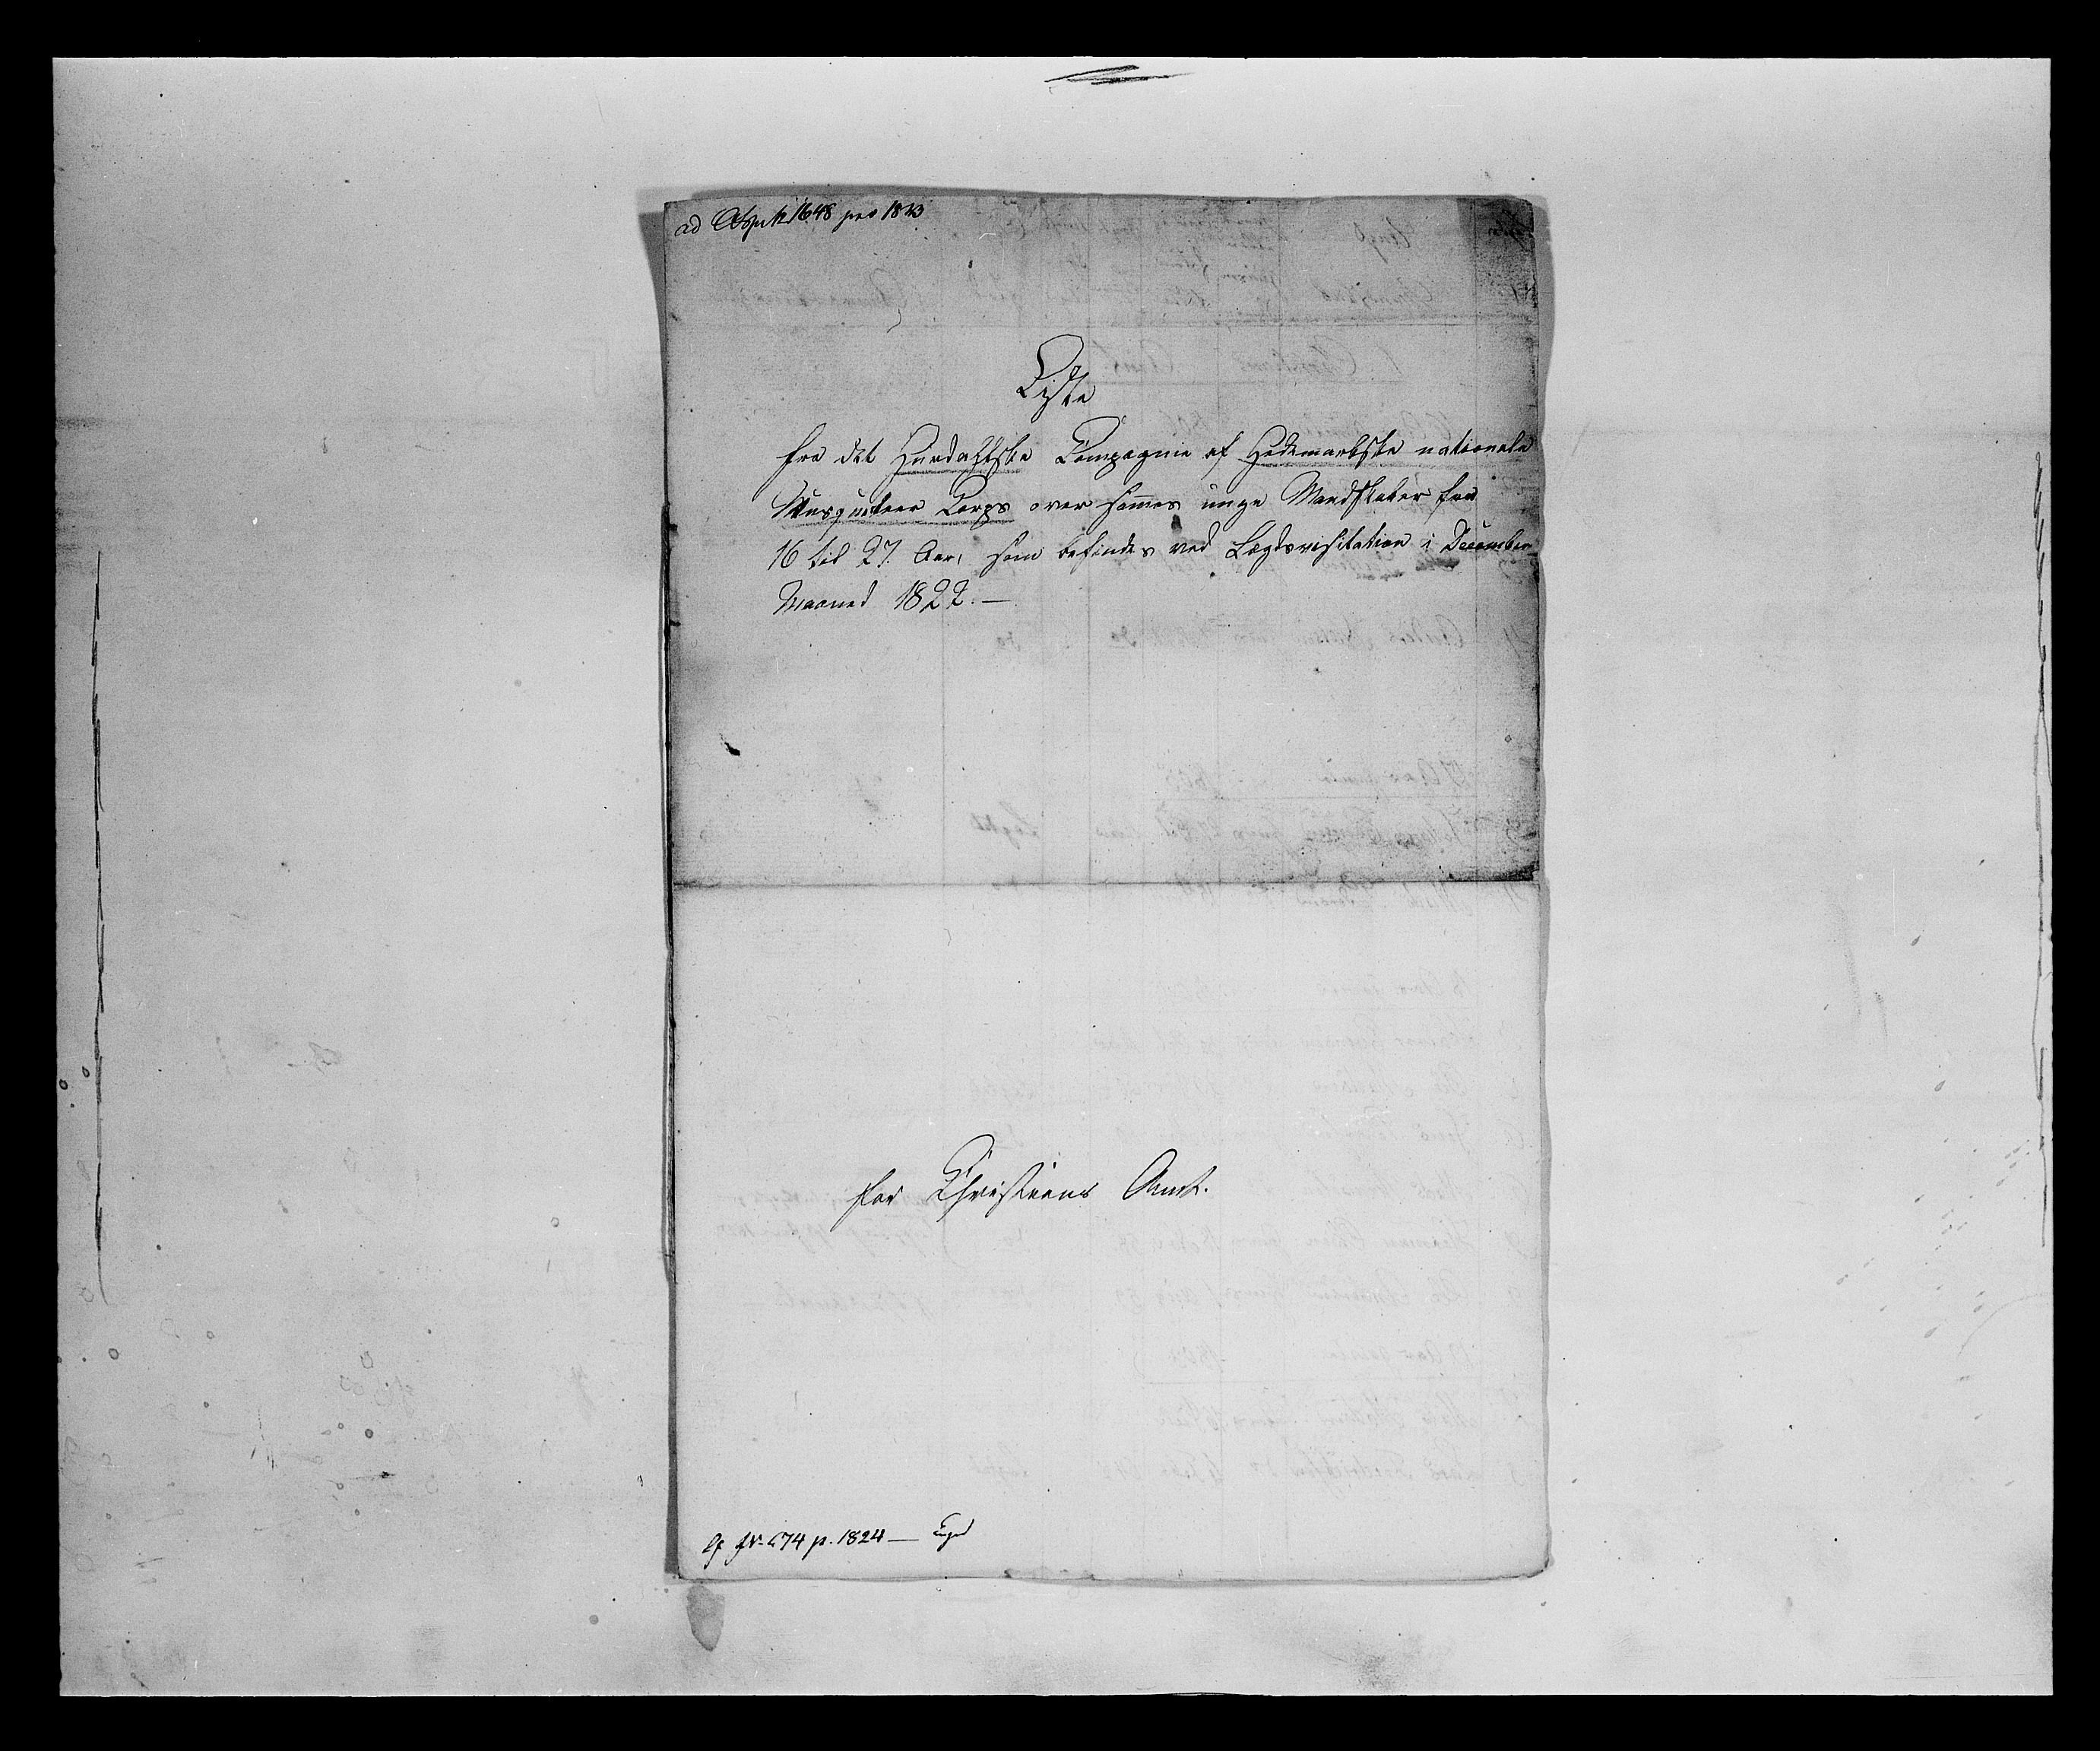 ad No 1648 pro 1823
Liste
fra det Hurdahlske Compagnie af Hedemarkske nationale
Musqueteer Corps over sammes unge Mandskaber fra
16 til 27 Aar, som befindes ved Lægdsvisitation i December
Maaned 1822.—
for Christians Amt.
cf No 674 p. 1824 —